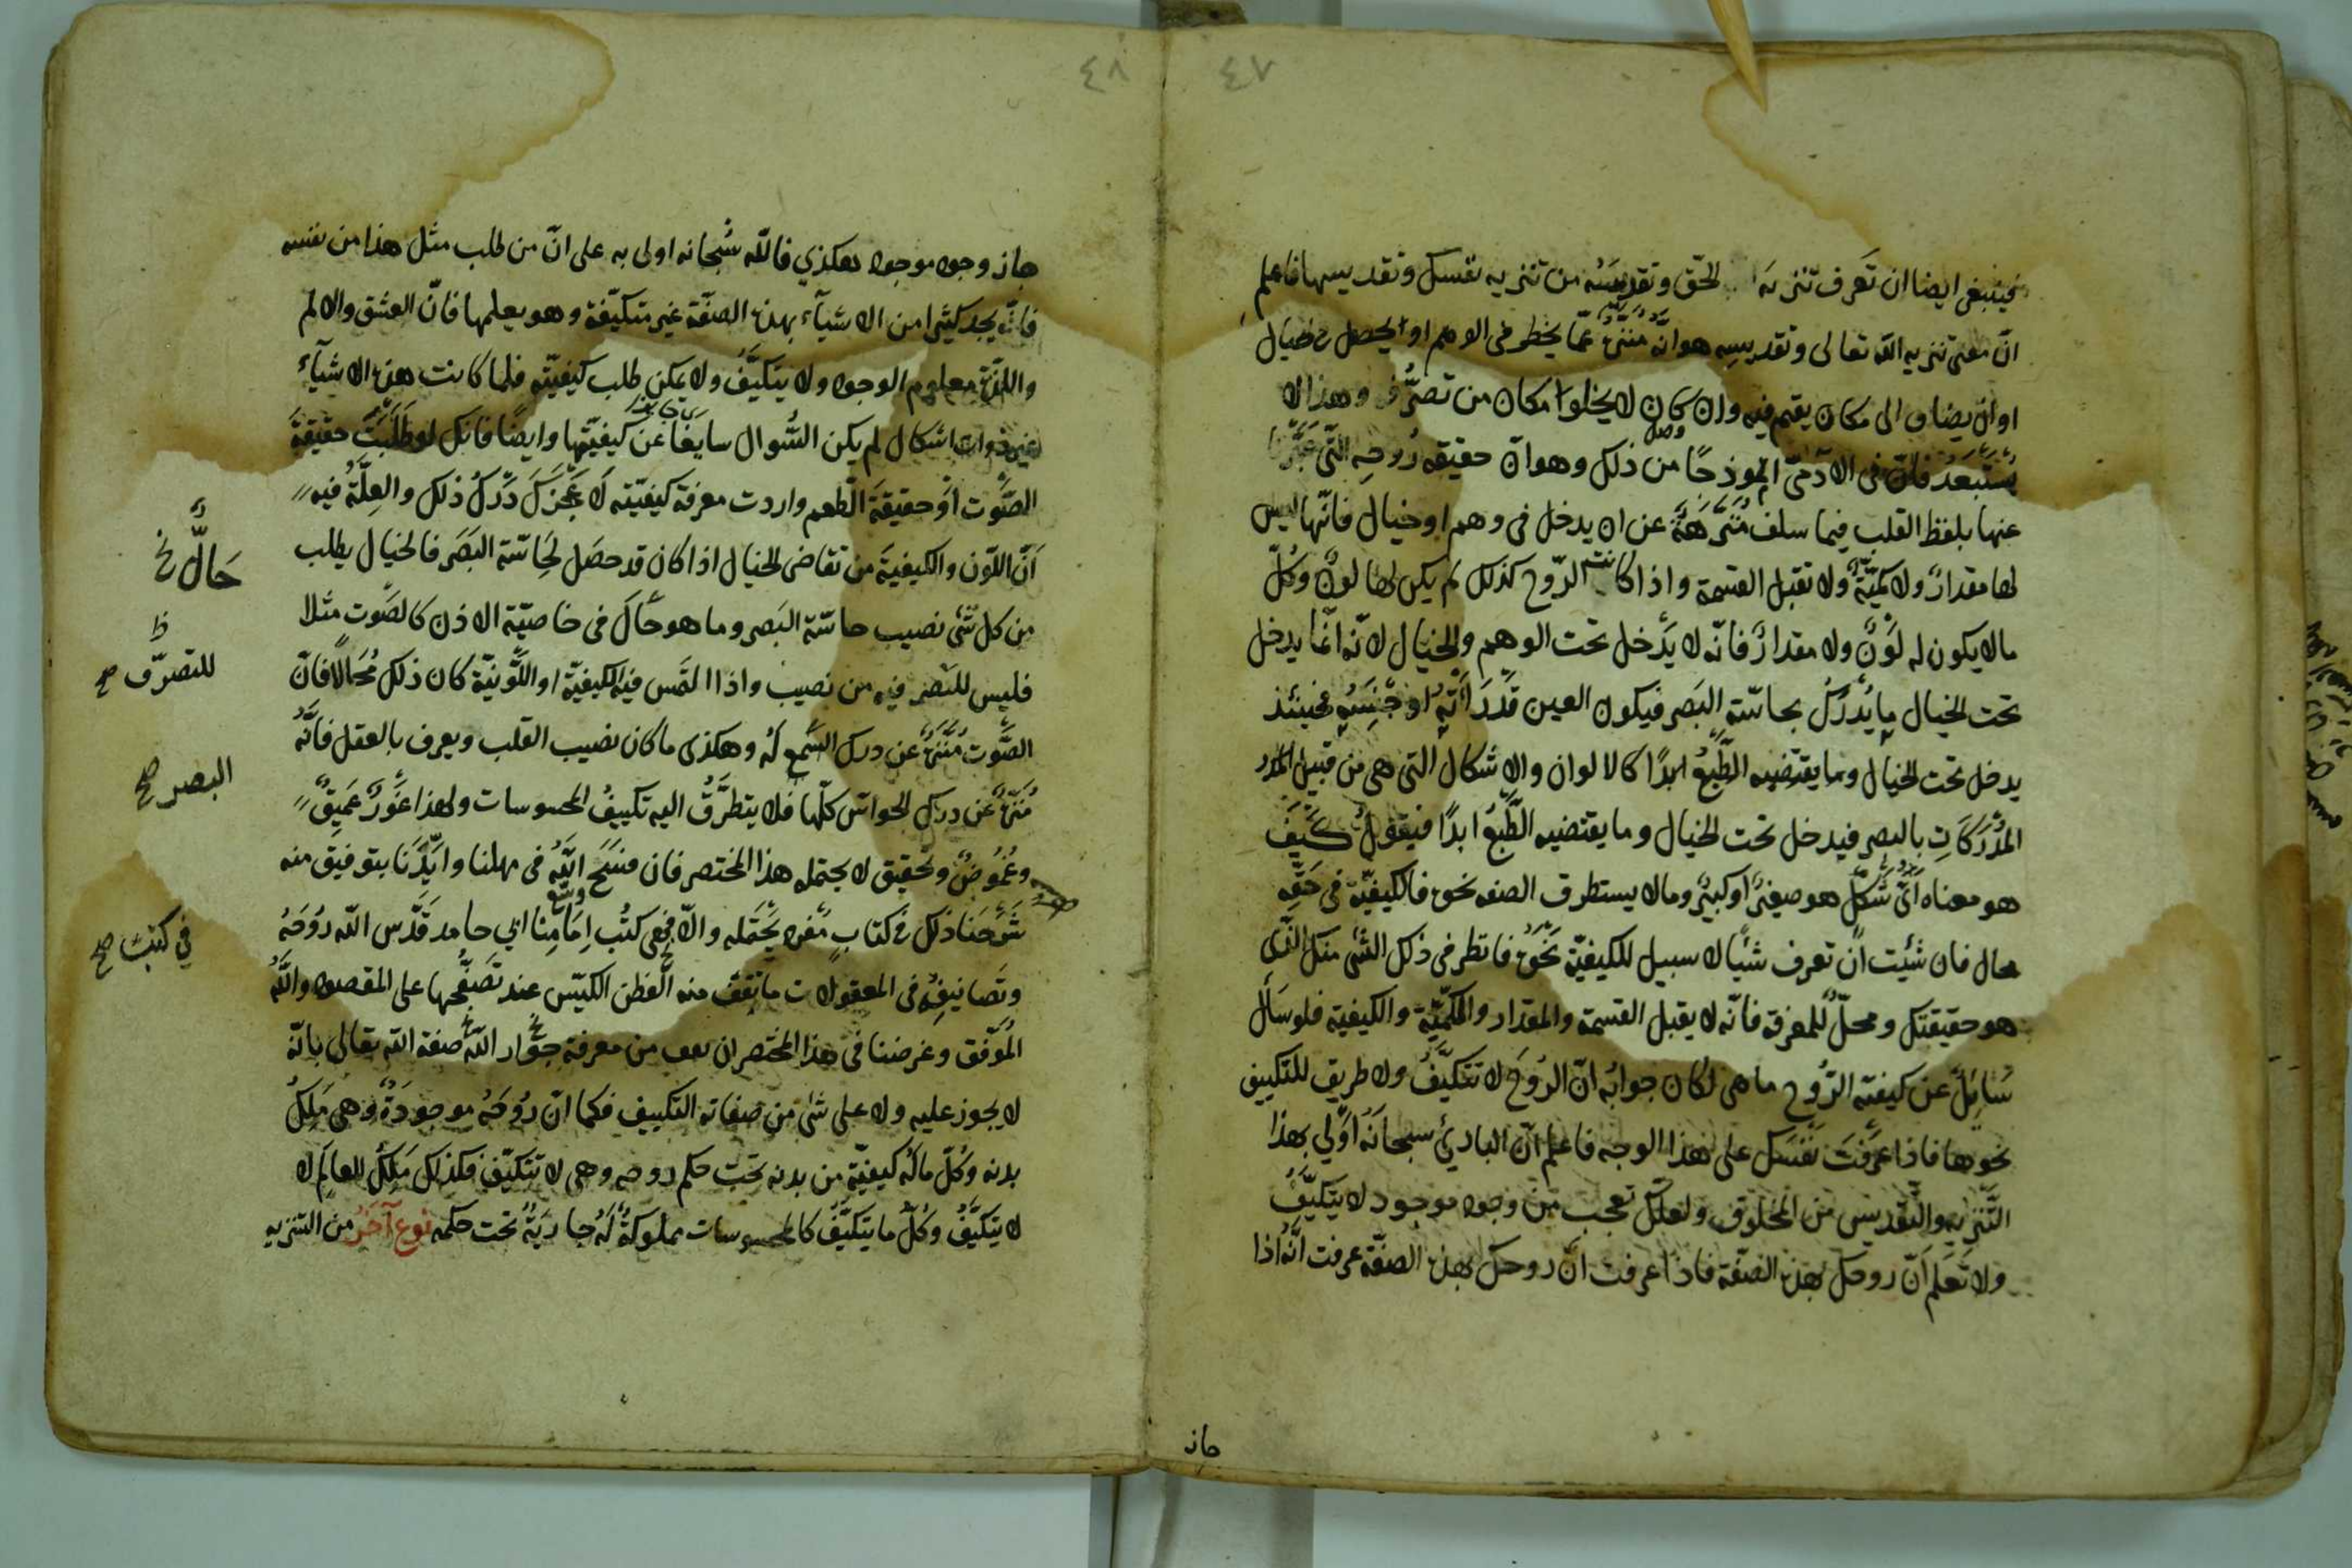 ٤٧
فينبغي ايضا ان تعرف تنزيه الحق وتقديسه من تنزيه نفسك وتقديسها فاعلم
انّ معنى تنزيه الله تعالى وتقديسه هو انّه منزّه عمّا يخطر في الوهم او يحصل في الخيال
او ان يضاف الى مكان يقيم فيه وان كان لا يخلوا مكان من تصرّف وهذا لا
يُستبعد فانّ في الآدميّ انموذجًا من ذلك وهو انّ حقيقة رُوحه التي عبّرنا
عنها بلفظ القلب فيما سلف مُنزّهة عن ان يدخل في وهم او خيال فانّها ليس
لها مقدارٌ ولا كميّة ولا تقبل القسمة واذا كانت الرّوح كذلك لم يكن لها لونٌ وكلّ
مالا يكون له لَونٌ ولا مقدارٌ فانّه لا يدخل تحت الوهم والخيال لانّه انّما يدخل
تحت الخيال ما يُدرك بحاسّة البَصر فيكون العين قَد رَأته او جنسه فحينئذ
يدخل تحت الخيال وما يقتضيه الطّبع ابدًا كالالوان والاشكال التي هي من قبيل
المُدرَكاتِ بالبصر فيدخل تحت الخيال وما يقتضيه الطّبعُ ابدًا فيقولُ كيف
هو معناه ايّ شكل هو صغيرٌ او كبيرٌ ومالا يستطرق الصفه نحوه فالكيفيّة في حقّه
محال فان شئت ان تعرف شيًا لا سبيل للكيفيّة نحوه فانظر في ذلك الشئ منك الذي
هو حقيقتك ومحلّ للمعرفة فانّه لا يقبل القسمة والمقدار والكمّيّة والكيفية فلو سَأل
سُائِلٌ عن كيفية الرّوح ما هي لكان جوابُه انّ الروحَ لا تتكيّفُ ولا طريق للتكييف
نحوها فاذا عرفتَ نفسَك على هذا الوجه فاعلم انّ البارئ سبحانَهُ اولى بهذا
التّنزيه والتّقديس من المخلوق ولعلّك تعجب من وجود موجود لا يتكيّفُ
ولا تَعلم انّ روحك بهذه الصّفة فاذا عرفت انّ روحك بهذه الصفّة عرفت انّه اذا
جاز
٤٨
جاز وجود موجود هكذي فالله سُبحانه اولى به على انّ من طلب مثل هذا من نفسه
فانّه يجد كثيرا من الاشيآء بهذه الصفّة غير متكيّفة وهو يعلمها فانّ العشق والالم
واللّذة معلوم الوجود ولا يتكيّفُ ولا يمكن طلب كيفيّته فلما كانت هذه الاشيآء
غير ذوات اشكال لم يكن السّوال سايغًا عن كيفيّتها وايضًا فانك لو طلبت حقيقة
الصّوت او حقيقة الطعم واردت معرفة كيفيّته لاعجزك دَرَكُ ذلك والعِلّة فيه
انّ اللّون والكيفيّة من تقاضى الخيال اذا كان قد حصَل لِحَاسّة البَصَر فالخيال يطلب
من كل شئ نصيب حاسّة البَصر وما هو حال في خاصيّة الاذن كالصّوت مثلا
فليس للبَصر فيه من نصيب واذا التمس فيه الكيفيّة او اللّونيّة كان ذلك مُحالًا فانّ
الصّوت منزّه عن درك السّمع لَه وهكذى ما كان نصيب القلب ويعرف بالعقل فانّه
مُنزّه عن درك الحواسّ كلّها فلا يتطرّق اليه تكييفُ المحسوسات ولهذا غورٌ عميقٌ
وغُموضٌ وتحقيق لا يحتمله هذا المختصر فان فسَحَ اللهُ في مهلنا وايّدنا بتوفيق منه
شرحنا ذلك في كتابٍ مفرد يحتمله والاّ فجمعي كتُب اِمَامِنا ابي حامد قدّس الله روحَهُ
وتَصَانيفِه في المعقولات ما تقف منه الفطن الكيّس عند تصفّحها على المقصود واللهُ
المُوفّق وغرضنا في هذا المختصر ان من معرفة جوار الله صفة الله تعالى بانّه
لا يجوز عليه ولا على شئ من صفاته التكييف فكما انّ رُوحَهُ موجودَةٌ وهي مَلِكُ
بدنه وكلّ ما لَه كيفيّة من بدنه تحت حكم روحه وهي لا تتكيّف فكذلك مَلِكُ العالَم لا
لا يتكيّفُ وكلّ ما يتكيّفُ كالمحسوسات مملوكةٌ لَهُ جاريَةٌ تحت حكمه نوع آخَرُ من التنزيه
حَالٌّ خ
للتصرّف صح
البصر صح
في كتب صح